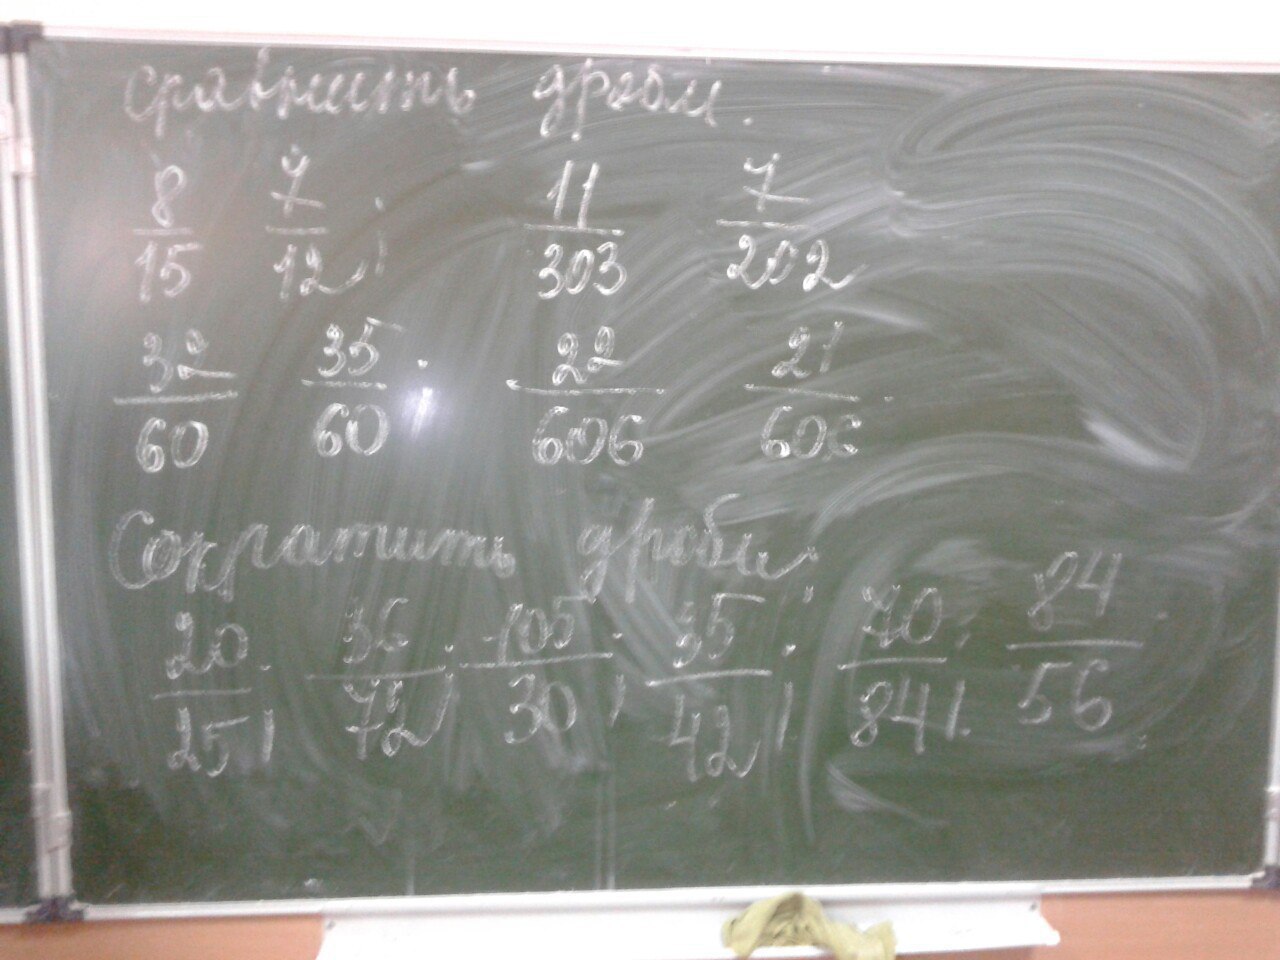 сравнить дроби.
8/15 7/12; 11/303 7/202
32/60 35/60; 22/606 21/606
Сократить дроби:
20/25; 36/72; 105/30; 35/42; 70/84; 84/56.